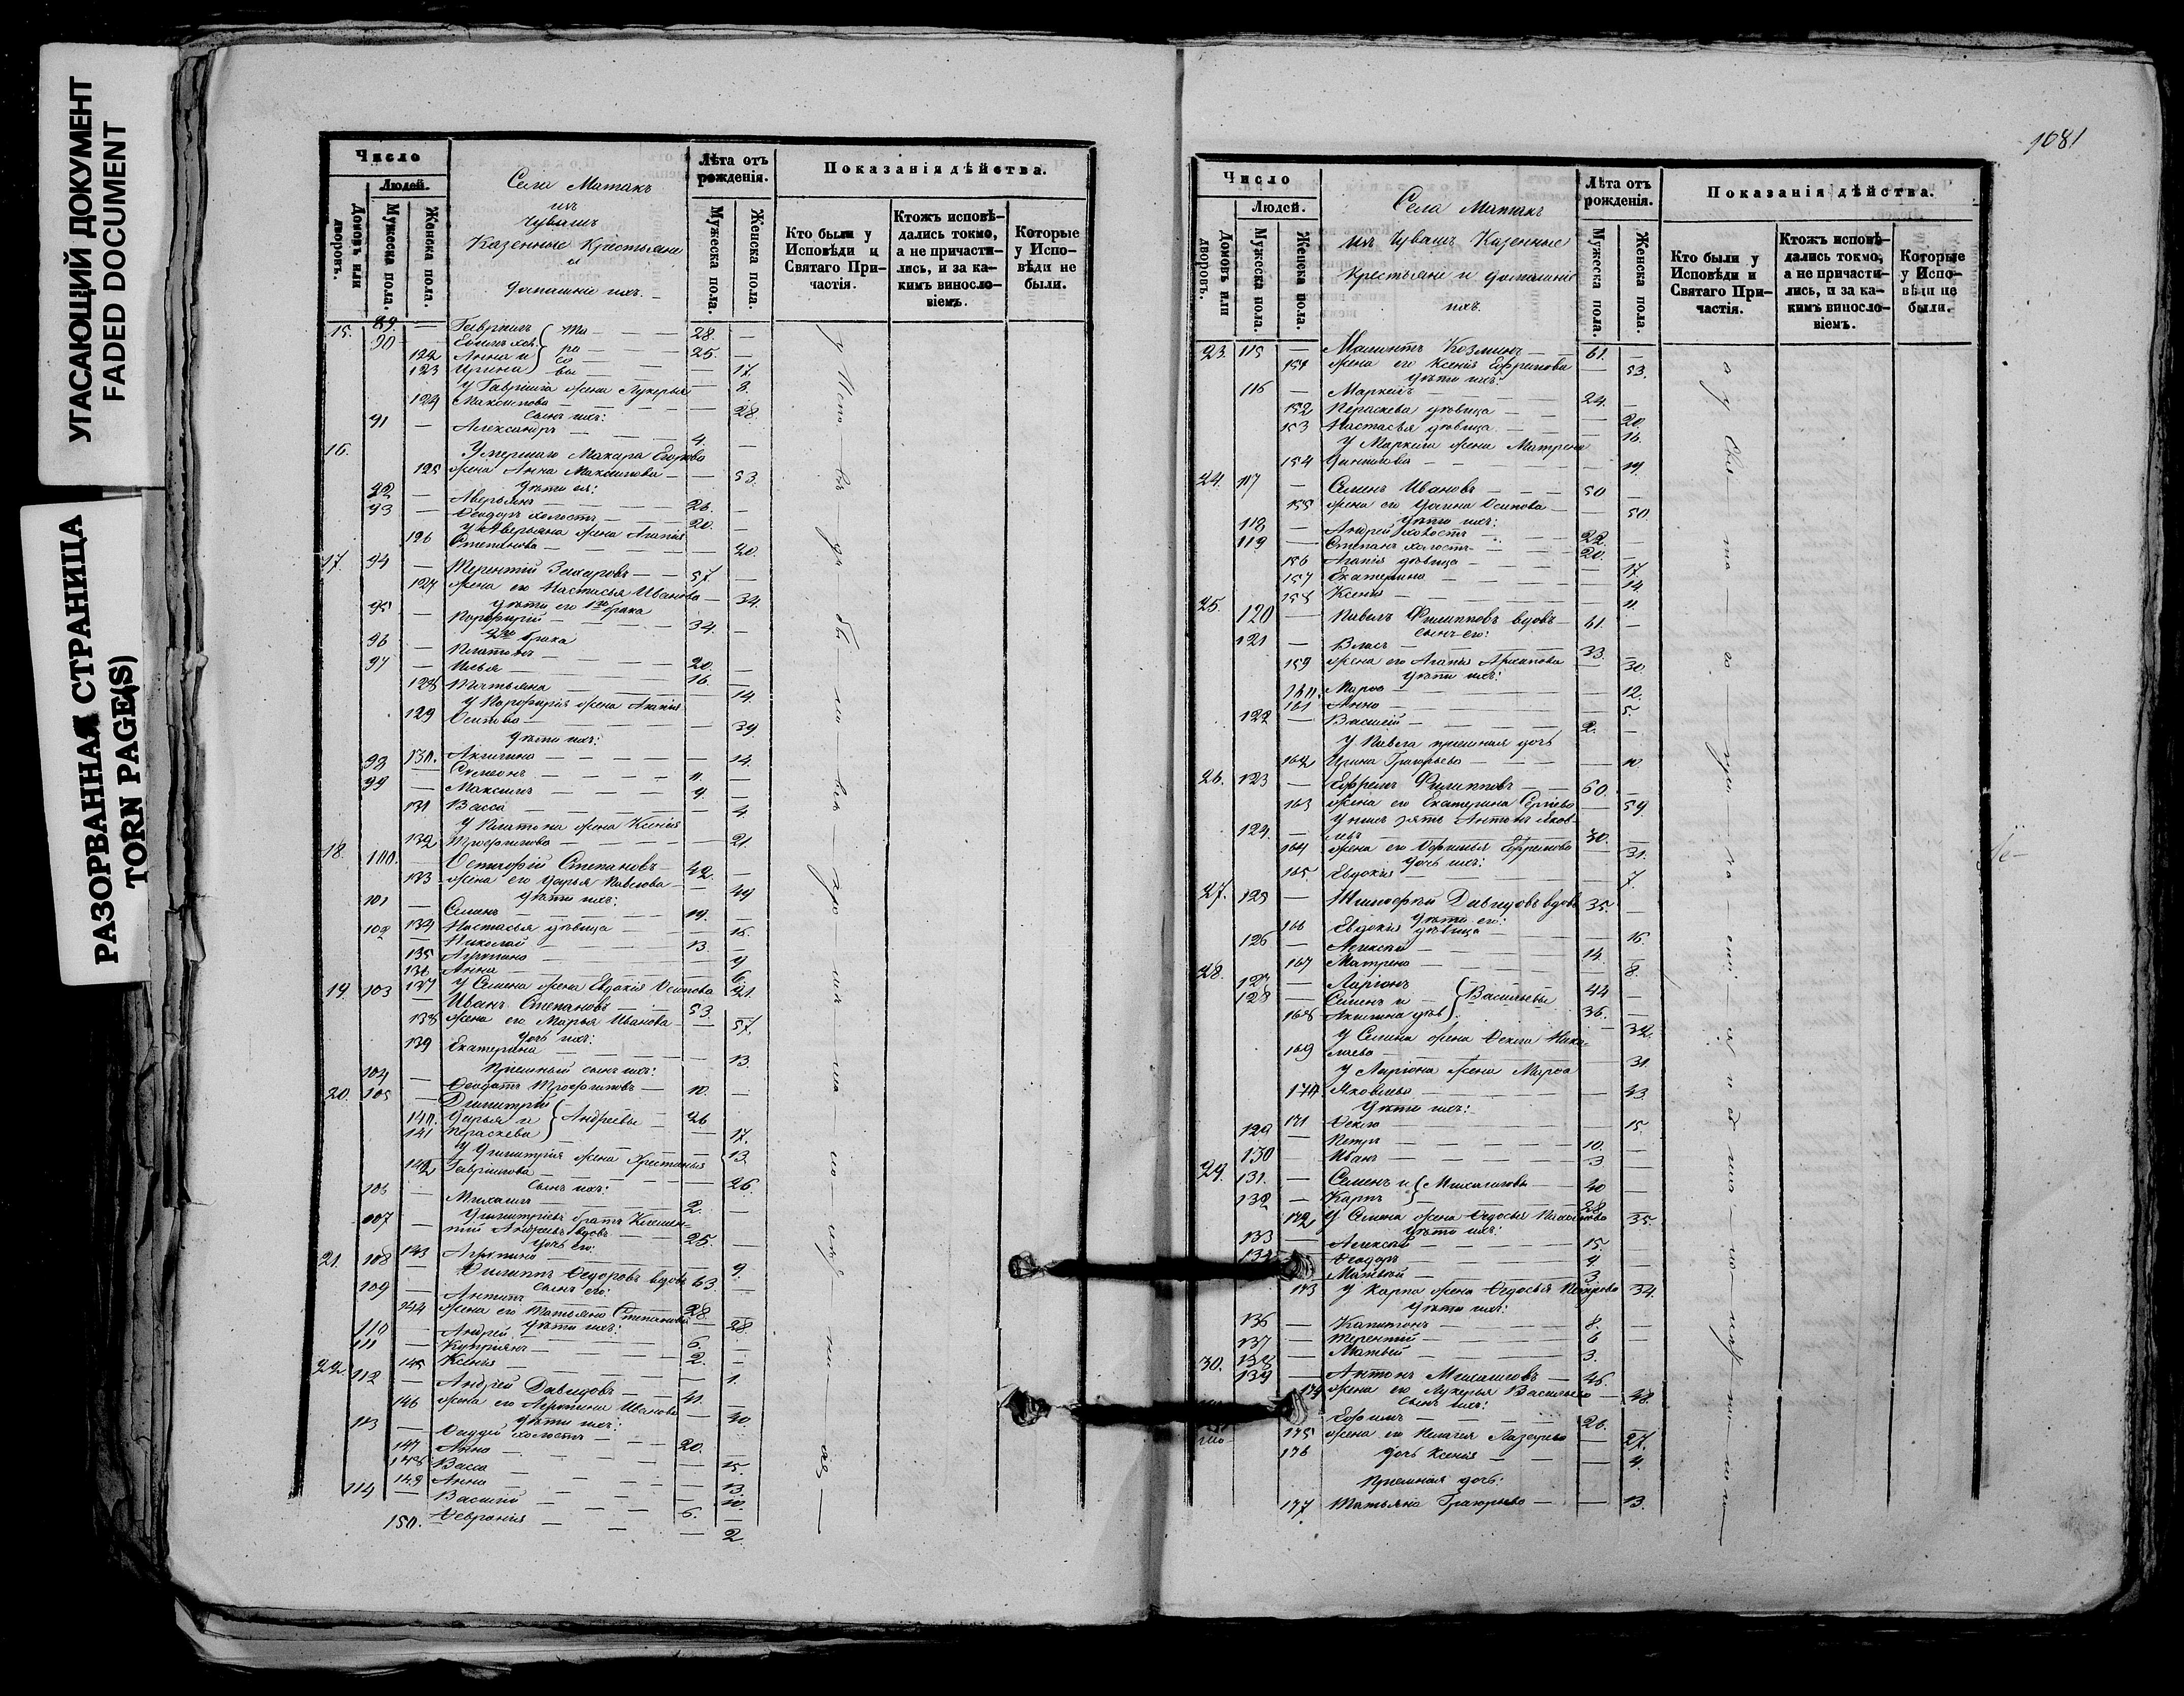 УГАСАЮЩИЙ ДОКУМЕНТ
FADED DOCUMENT
РАЗОРВАННАЯ СТРАНИЦА
TORN PAGE(S)
Число
Людей.
Домовъ или дворовъ.
Мужеска пола.
Женска пола.
Села Матакъ
изъ
Чувашъ
Казенные Крестьяне
и
домашніе ихъ.
Лѣта отъ рожденія.
Мужеска пола.
Женска пола.
Показанія дѣйства.
Кто были у Исповѣди и Святаго Причастія.
Ктожъ исповѣдались токмо, а не причастились, и за какимъ винословіемъ.
Которые у Исповѣди не были.
15. 89. — Гавріилъ — 28. —
90 — 25. —
122 Анна и — 17.
123 Ирина — 8.
У Гавріила жена Лукерья
124 Максимова — — 28.
Сынъ ихъ:
91 — Александръ — 4. —
16. Умершаго Макара Егорова
125 жена Анна Максимова — — 53.
Дѣти ея:
92 — Аверьянъ — 26. —
93 — Ѳеодоръ холостъ — 20. —
У Аверьяна жена Агапія
126 Степанова — — 20.
17. 94 — Терентій Захаровъ — 57. —
127 жена его Настасья Иванова — 34.
Дѣти его 1го брака
95 — Порфирій — 34. —
2го брака
96 — Платонъ — 20. —
97 — Илья — 16. —
128 Татьяна — — 14.
У Порфирія жена Агапія
129 Осипова — — 39
Дѣти ихъ:
130. Акилина — — 14.
98 — Симеонъ — 11. —
99 — Максимъ — 9. —
131 Васса — — 4.
У Платона жена Ксенія
132 Трофимова — — 21
18. 100. — Остафій Степановъ — 42. —
133 жена его Дарья Павлова — — 49
Дѣти ихъ:
101 — Семенъ — 19. —
134 Настасья дѣвица — — 16.
102 — Николай — 13. —
135 Агрипина — — 9
136 Анна — — 6.
137 У Семена жена Евдокія Осипова 21.
19. 103 — Иванъ Степановъ — 53. —
138 жена его Марья Иванова — — 57.
Дочь ихъ:
139 Екатерина — — 13.
Пріемный сынъ ихъ:
104 — Ѳеодотъ Трофимовъ — 10. —
20. 105 — Димитрій — 26
140. Дарья и } Андреевы — 17.
141 Параскева — 13.
У Димитрія жена Христинья
142 Гавріилова — — 26.
Сынъ ихъ:
106 — Михаилъ — 2. —
Димитріевъ братъ Климен-
107 — тій Андреевъ вдовъ — 25. —
Дочь его:
143 Агрипина — — 9.
21. 108 — Филиппъ Ѳедоровъ вдовъ 63. —
Сынъ его:
109 — Антипъ — 28. —
144 жена его Татьяна Степанова — 28.
Дѣти ихъ:
110 — Андрей — 6. —
111 — Купріянъ — 2. —
145 Ксенія — — 1.
22. 112 — Андрей Давыдовъ — 41. —
146 жена его Агрипина Иванова — 40.
Дѣти ихъ:
113 — Ѳаддей холостъ — 20. —
147 Анна — — 15.
148 Васса — — 13.
149 Анна — — 10.
114 — Василій — 6. —
150. Ѳевронія — — 2
1081
Число
Людей.
Домовъ или дворовъ.
Мужеска пола.
Женска пола.
Села Матакъ
изъ Чувашъ Казенные
Крестьяне и домашніе
ихъ.
Лѣта отъ рожденія.
Мужеска пола.
Женска пола.
Показанія дѣйства.
Кто были у Исповѣди и Святаго Причастія.
Ктожъ исповѣдались токмо, а не причастились, и за какимъ винословіемъ.
Которые у Исповѣди не были.
23. 115 — Козминъ — 61. —
151 жена его Ксенія Ефремова — 53.
Дѣти ихъ:
116 — Маркелъ — 24. —
152 Параскева дѣвица — — 20.
153 Настасья дѣвица — — 16.
У Маркела жена Матрена
154 Данилова — — 19.
24. 117 — Семенъ Ивановъ — 50 —
155 жена его Осипова — — 50
Дѣти ихъ:
118 — Андрей холостъ — 22. —
119 — Степанъ холостъ — 20. —
156 Агапія дѣвица — — 17
157 Екатерина — — 14.
158 Ксенія — — 11.
25. 120 — Павелъ Филипповъ вдовъ — 61. —
Сынъ его:
121 — Власъ — 33. —
159 жена его Агапья Архипова — 30.
Дѣти ихъ:
160. Марѳа — — 12.
161 Анна — — 5.
122 — Василій — 2. —
У Павла пріемная дочь
162 Ирина Григорьева — — 10
26. 123 — Ефремъ Филипповъ — 60. —
163 жена его Екатерина Сергѣева — 59.
У нихъ зять Антонъ Яков-
124. — левъ — 30. —
164 жена его Ефремова — 31.
Дочь ихъ:
165. Евдокія — — 7.
27. 125 — Тимоѳей Давыдовъ вдовъ 35. —
Дѣти его:
166 Евдокія дѣвица — — 16.
126 — Алексѣй — 14. —
167 Матрена — — 8.
28. 127 — Ларіонъ — 44 —
128 — Семенъ и } Васильевы 36. —
168 Акилина дѣв — 32.
У Семена жена Ѳекла Нико-
169 лаева — — 31.
У Ларіона жена Марѳа
170 Яковлева — — 43.
Дѣти ихъ:
171 Ѳекла — — 15.
129 — Петръ — 10. —
130 — Иванъ — 3 —
29. 131. — Семенъ и } Михаиловы — 40 —
132 — Карпъ — 28 —
172 У Семена жена Ѳедосья 35.
Дѣти ихъ:
133 — Алексѣй — 15. —
134 — Ѳеодоръ — 9. —
Матвѣй — 3. —
173 У Карпа жена Ѳедосья Петрова 34.
Дѣти ихъ:
136 — Капитонъ — 8. —
137 — Терентій — 6 —
138 — Матвѣй — 3. —
30. 139 — Антонъ Михаиловъ — 46. —
174 жена его Лукерья Васильева — 48.
Сынъ ихъ:
Ефимъ — 26. —
175 жена его Пелагія Лазарева — 27.
176 Дочь Ксенія — — 4.
Пріемная дочь:
177 Татьяна Григорьева — — 13.